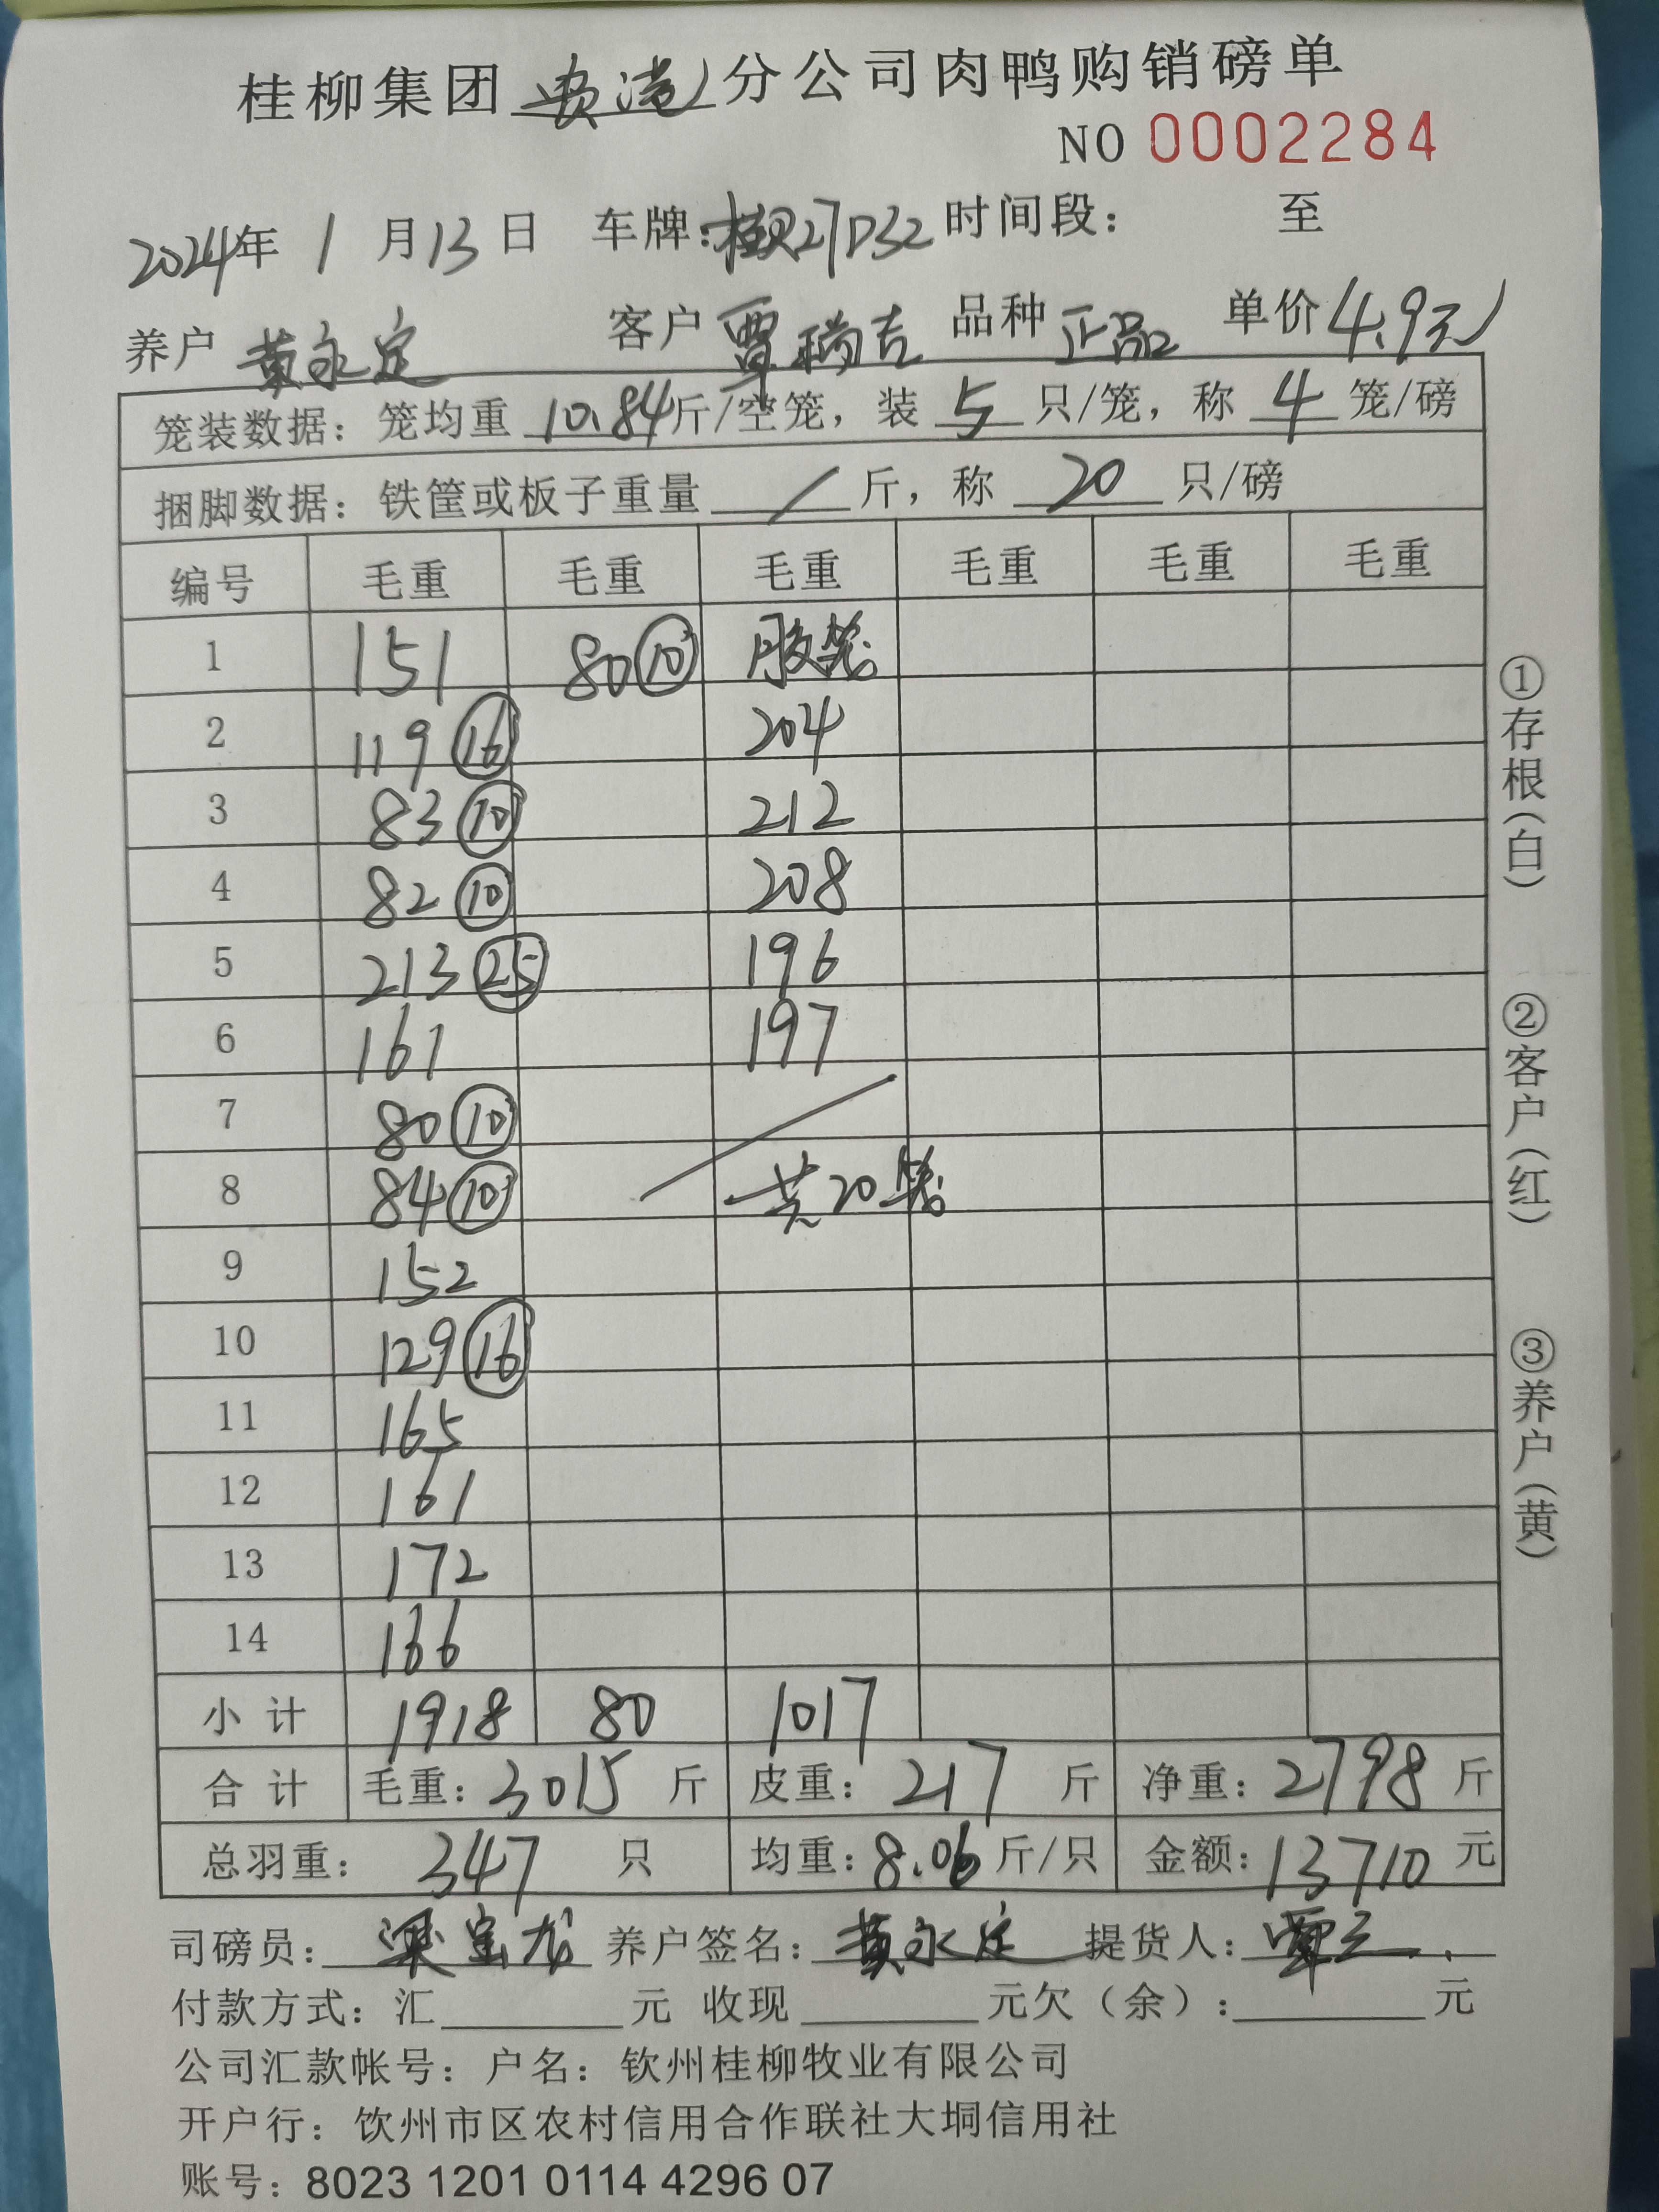 桂柳集团贵港分公司肉鸭购销磅单
NO 0002284
2024年 1 月 13 日 车牌:桂R27D32 时间段: 至
养户 黄永定 客户 覃瑞吉 品种 正品 单价 4.9元
笼装数据: 笼均重 10.84 斤/空笼, 装 5 只/笼, 称 4 笼/磅
捆脚数据: 铁筐或板子重量 / 斤, 称 20 只/磅
编号 毛重 毛重 毛重 毛重 毛重 毛重
1 151 80⑩ 胶笼
2 119⑯ 204
3 83⑩ 212
4 82⑩ 208
5 213㉕ 196
6 161 197
7 80⑩
8 84⑩ 共20笼
9 152
10 129⑯
11 165
12 161
13 172
14 166
小 计 1918 80 1017
合 计 毛重: 3015 斤 皮重: 217 斤 净重: 2798 斤
总羽重: 347 只 均重: 8.06 斤/只 金额: 13710 元
司磅员: 梁宝龙 养户签名: 黄永定 提货人: 覃
付款方式: 汇 元 收现 元欠(余): 元
公司汇款帐号: 户名: 钦州桂柳牧业有限公司
开户行: 饮州市区农村信用合作联社大垌信用社
账号: 8023 1201 0114 4296 07
①存根(白)
②客户(红)
③养户(黄)